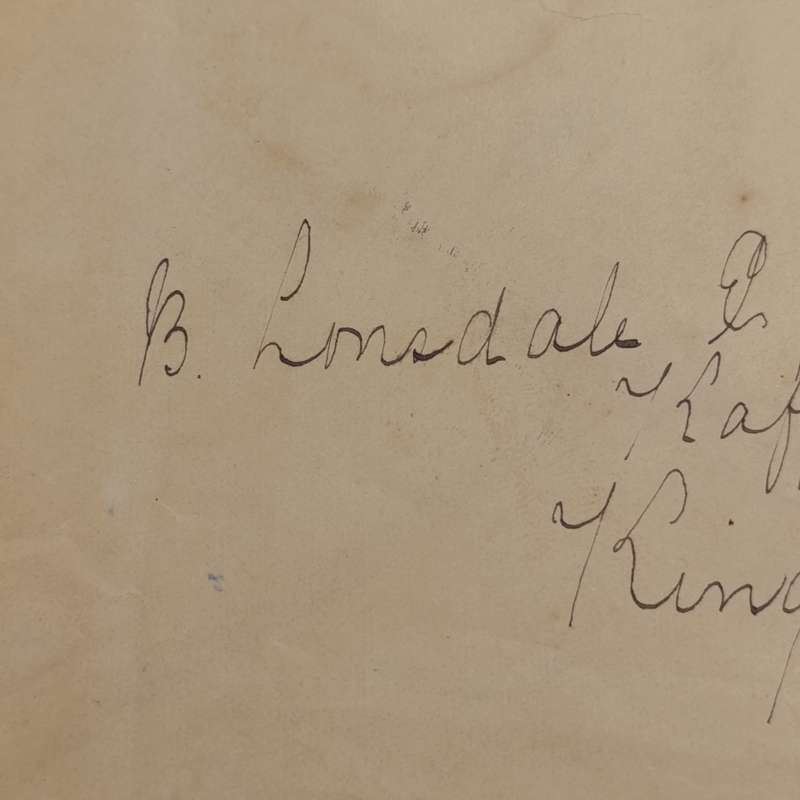 B. Lonsdale E
Kaf
King